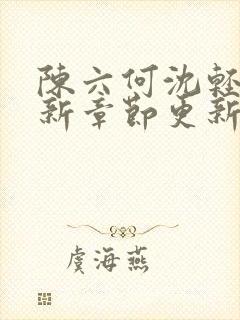 陳六何沈輕
新章節更新
虞海燕